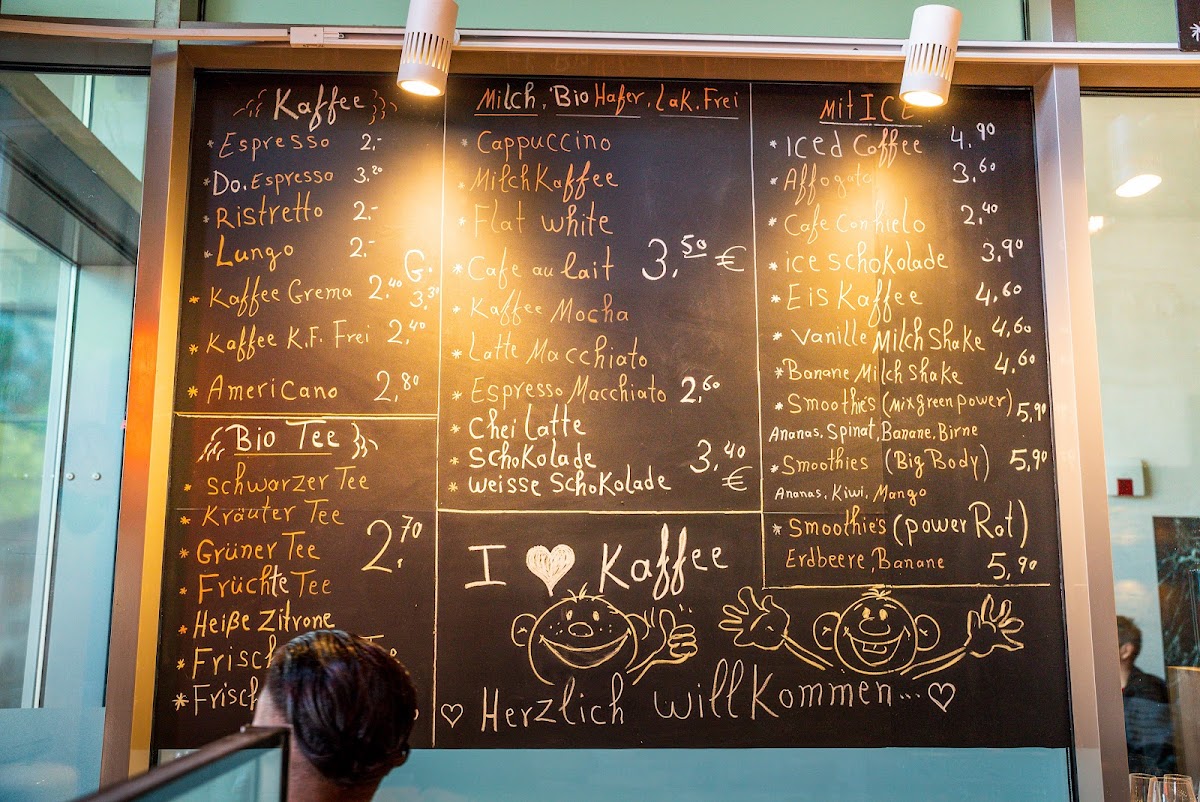 Kaffee
* Espresso 2,-
* Do. Espresso 3,20
* Ristretto 2,-
* Lungo 2,-
G.
* Kaffee Grema 2,40 3,30
* Kaffee K.F. Frei 2,40
* Americano 2,80
Bio Tee
* Schwarzer Tee
* Kräuter Tee
* Grüner Tee 2,70
* Früchte Tee
* Heiße Zitrone
* Frisch
* Frisch
Milch, Bio Hafer, Lak. Frei
* Cappuccino
* Milch Kaffee
* Flat white
* Cafe au lait 3,50 €
* Kaffee Mocha
* Latte Macchiato
* Espresso Macchiato 2,60
* Chei Latte
* Schokolade 3,40
* weisse Schokolade €
I Kaffee
Herzlich willkommen...
Mit ICE
* Iced Coffee 4,90
* Affogato 3,60
* Cafe Con hielo 2,40
* ice schokolade 3,90
* Eis Kaffee 4,60
* Vanille Milch Shake 4,60
* Banane Milch Shake 4,60
* Smoothie's (mix green power) 5,90
Ananas, Spinat, Banane, Birne
* Smoothies (Big Body) 5,90
Ananas, Kiwi, Mango
* Smoothie's (power Rot)
Erdbeere, Banane 5,90